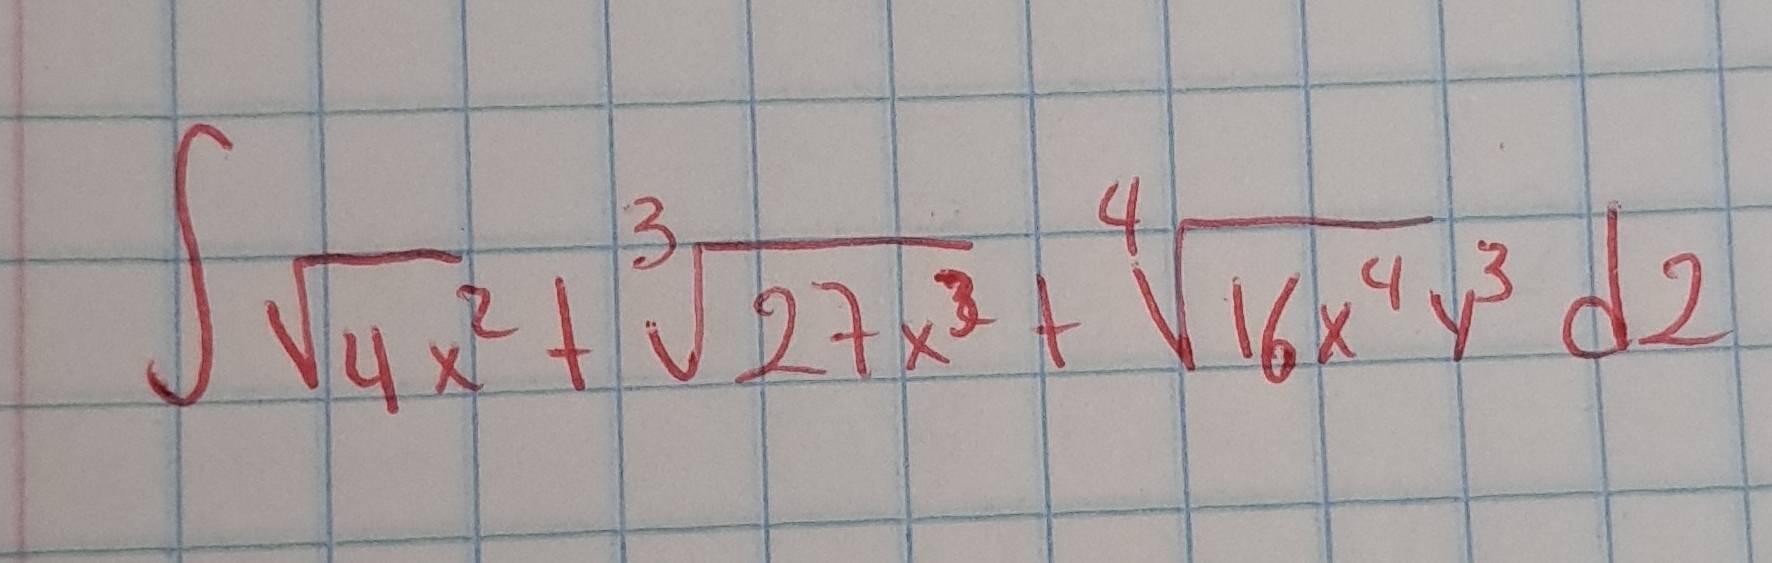 ∫ √4x² + ³√27x³ + ⁴√16x⁴ y³ d2